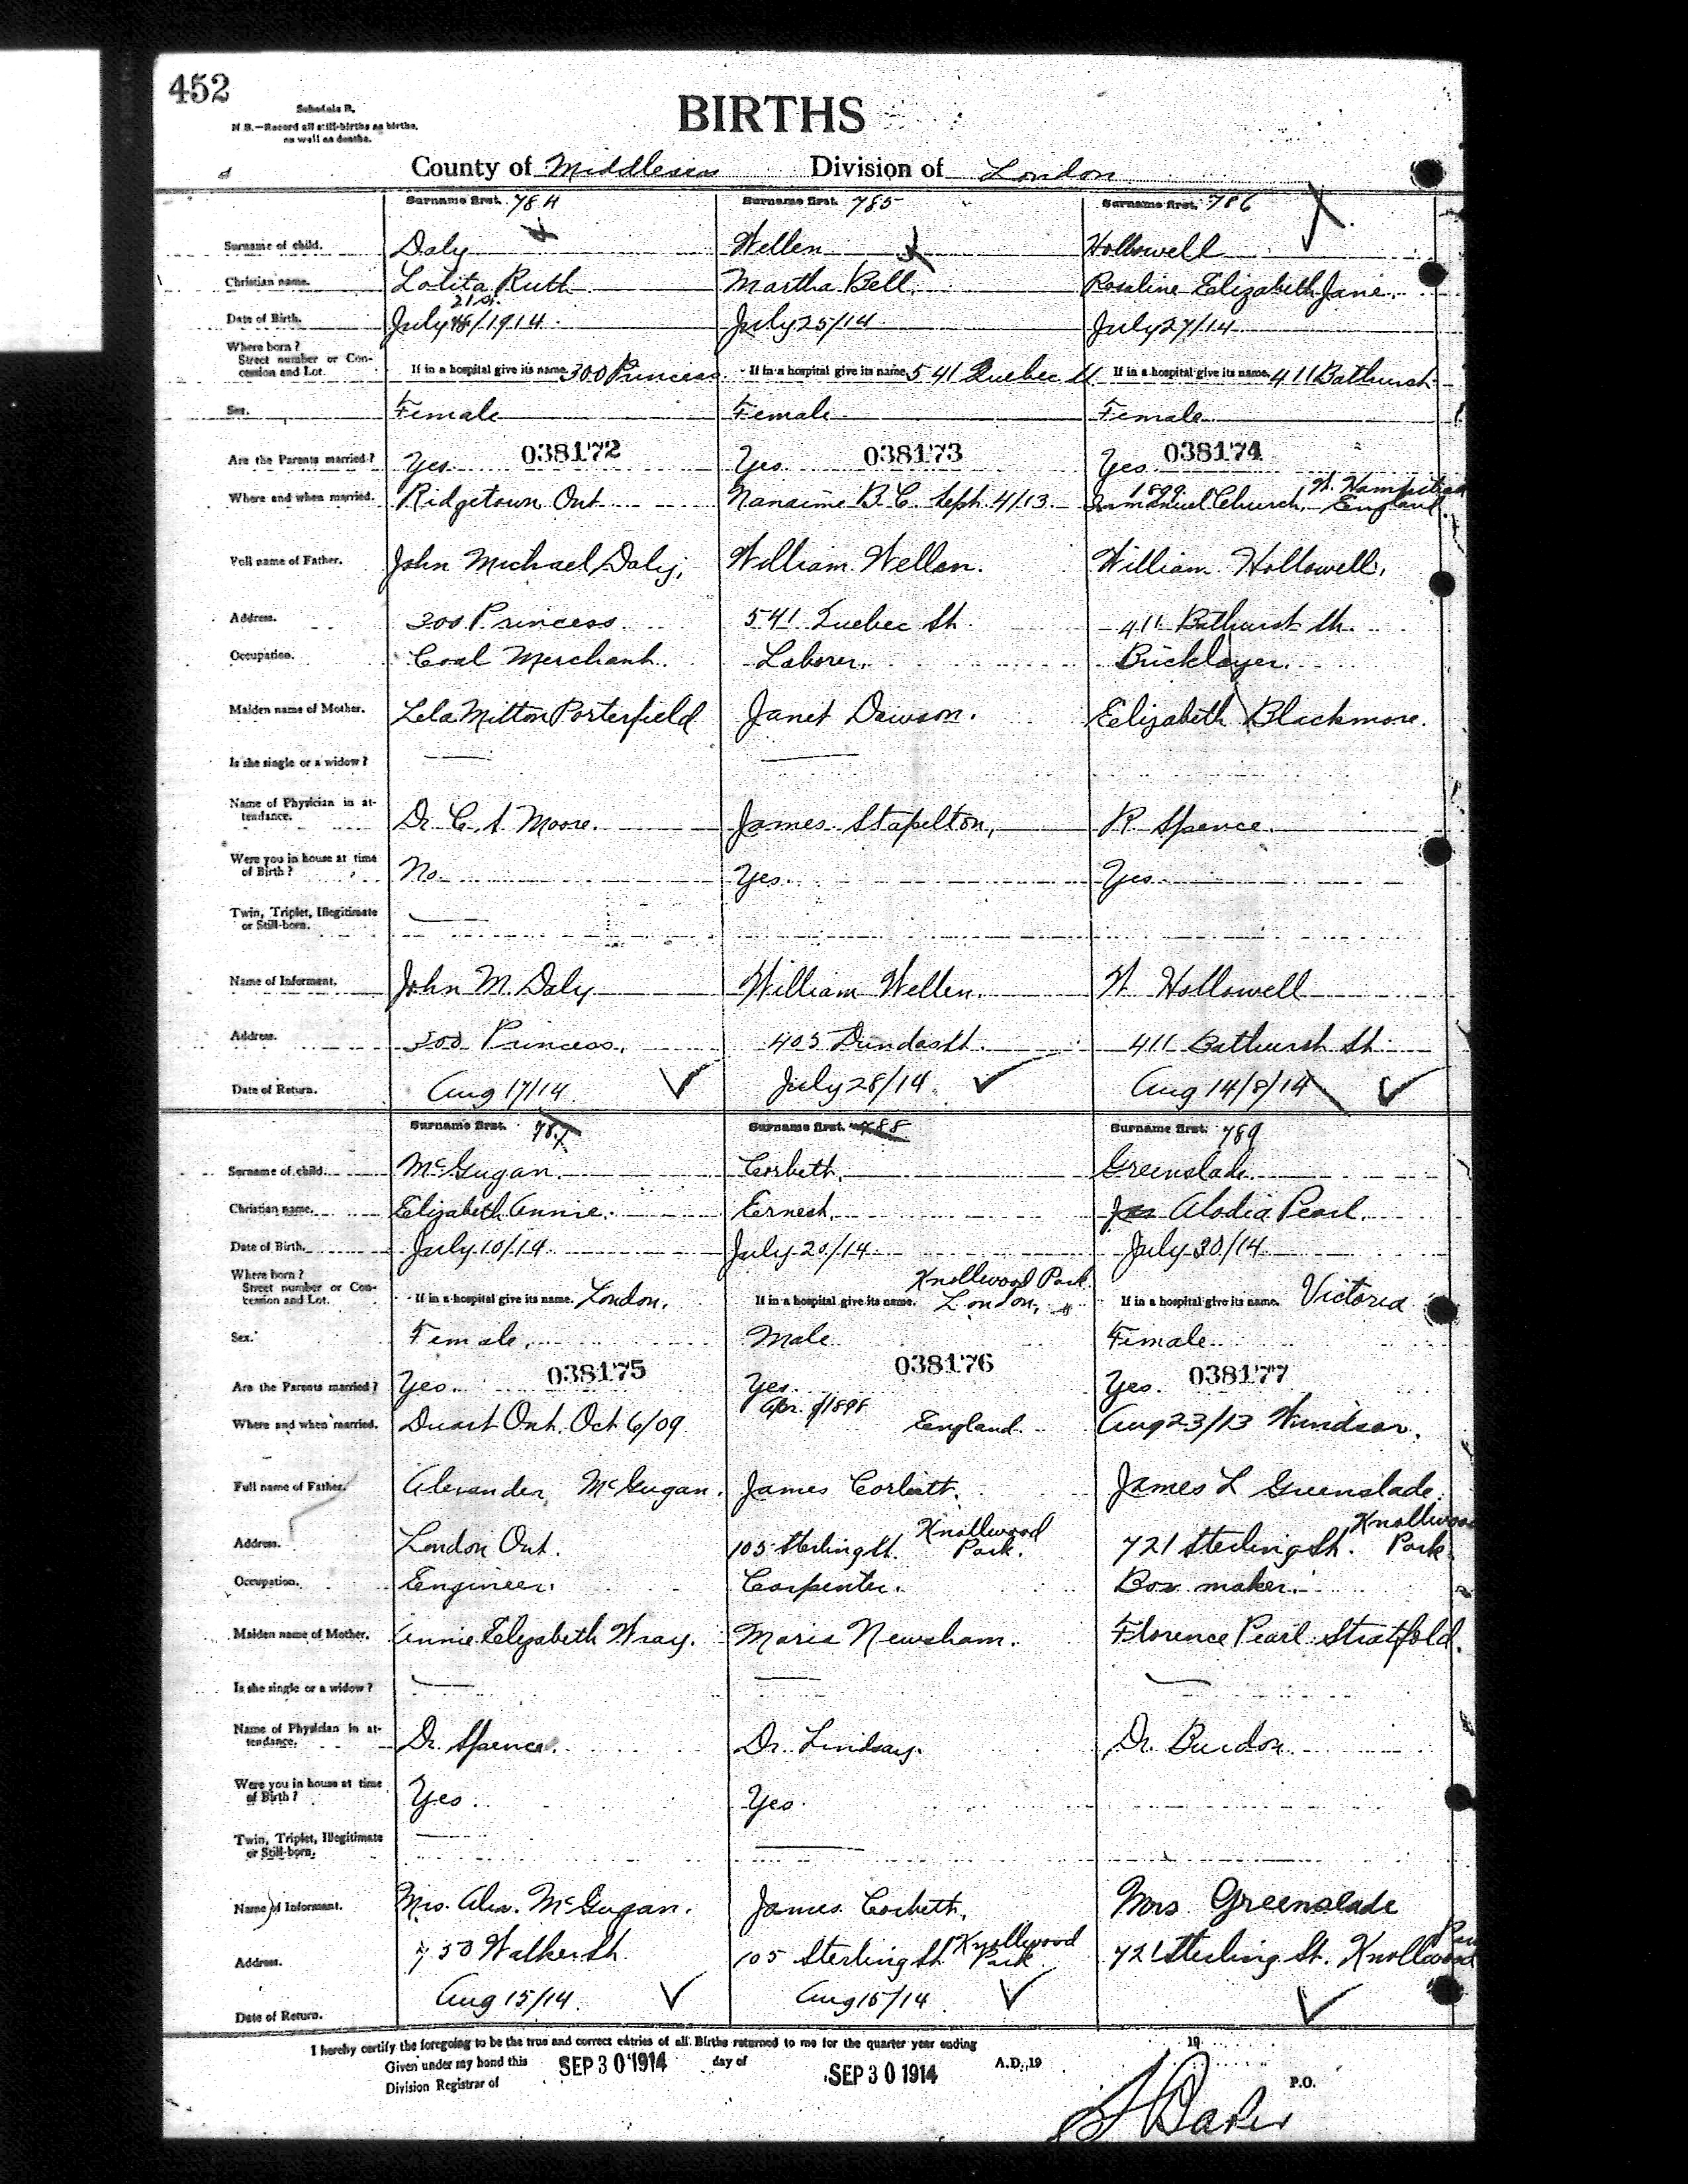 452
Schedule B.
N B.—Record all still-births as births, as well as deaths.
BIRTHS
County of Middlesex Division of London
Surname first. 784 Surname first. 785 Surname first. 786
Surname of child. Daly Wellen Hollowell
Christian name. Lolita Ruth Martha Bell. Rosaline Elizabeth Jane.
21st
Date of Birth. July /1914. July 25/14 July 27/14
Where born?
Street number or Concession and Lot. If in a hospital give its name. 300 Princess If in a hospital give its name. 541 Quebec St If in a hospital give its name. 411 Bathurst
Sex. Female Female Female
Are the Parents married? Yes. 038172 Yes. 038173 Yes. 038174
Where and when married. Ridgetown Ont Nanaimo B.C. Sept. 4/13 1899 Immanuel Church, W. Hampstead England.
Full name of Father. John Michael Daly. William Wellen. William Hollowell.
Address. 300 Princess. 541 Quebec St. 411 Bathurst St.
Occupation. Coal Merchant. Laborer. Bricklayer.
Maiden name of Mother. Lela Mitton Porterfield Janet Dawson. Eelizabeth Blackmore.
Is she single or a widow? — —
Name of Physician in attendance. Dr. C. S Moore. James Stapelton, R. Spence.
Were you in house at time of Birth? No. Yes. Yes.
Twin, Triplet, Illegitimate or Still-born. —
Name of Informant. John M. Daly William Wellen. W. Hollowell
Address. 300 Princess. 405 Dundas St. 411 Bathurst St.
Date of Return. Aug 17/14 ✓ July 28/14. ✓ Aug 14/8/14 ✓
Surname first. 787 Surname first. 788 Surname first. 789
Surname of child. McGugan. Corbett. Greenslade.
Christian name. Elizabeth Annie. Ernest. Alodia Pearl.
Date of Birth. July 10/14 July 20/14. July 30/14
Where born?
Street number or Concession and Lot. If in a hospital give its name. London. If in a hospital give its name. Knollwood Park London. If in a hospital give its name. Victoria
Sex. Female. Male Female.
Are the Parents married? Yes. 038175 Yes. 038176 Yes. 038177
Where and when married. Duart Ont. Oct 6/09 Apr. 9/1898 England. Aug 23/13 Windsor.
Full name of Father. Alexander McGugan. James Corbett. James L Greenslade.
Address. London Ont. 105 Sterling St. Knollwood Park. 721 Sterling St. Knollwood Park
Occupation. Engineer. Carpenter. Box maker.
Maiden name of Mother. Annie Elizabeth Wray. Maria Newsham. Florence Pearl Stratfold.
Is she single or a widow? — — —
Name of Physician in attendance. Dr. Spence. Dr. Lindsay. Dr. Burdon
Were you in house at time of Birth? Yes. Yes.
Twin, Triplet, Illegitimate or Still-born. — —
Name of Informant. Mrs. Alex. McGugan. James Corbett. Mrs Greenslade
Address. 750 Walker St. 105 Sterling St. Knollwood Park 721 Sterling St. Knollwood
Date of Return. Aug 15/14. ✓ Aug 15/14 ✓ ✓
I hereby certify the foregoing to be the true and correct entries of all Births returned to me for the quarter year ending 19
Given under my hand this SEP 30 1914 day of SEP 30 1914 A.D., 19
Division Registrar of P.O.
S Baker